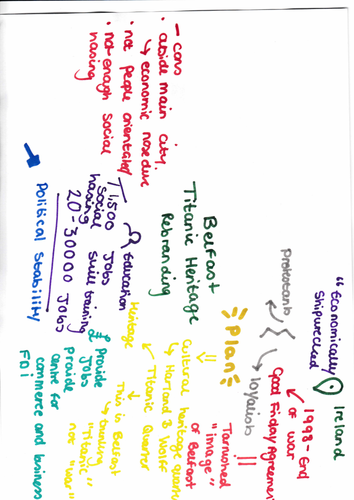 Ireland
"Economically
Shipwrecked
1998 - End
of war
Good Friday Agreement
loyalists
Tarnished
"image"
of Belfast
Plan
Belfast
Titanic Heritage
Rebranding
Cultural heritage
Harland & Wolff
Titanic Quarter
Heritage
This is Belfast
turning
"Titanic"
not "war"
Education
£ Provide
Jobs
Provide
centre for
commerce and business
FDI
1500 Jobs
Social skill training
housing
20-30000 Jobs
Political Stability
- cons
• aside main city.
↳ economic nosedive
• not people orientated
• not enough social
housing